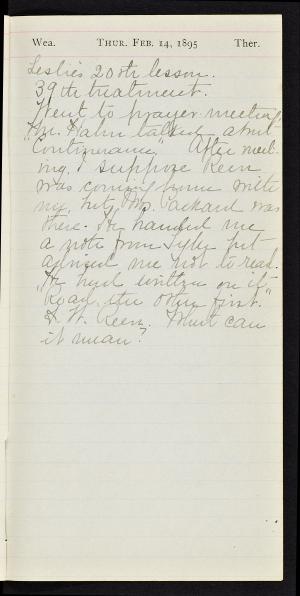 Wea. THUR. FEB. 14, 1895 Ther.
Leslie's 20th lesson.
39th treatment.
Went to prayer meeting
Mr. Hahn talked about
"Continuance". After meet-
ing, I suppose Keen
was coming home with
me, but Mr. Packard was
there. He handed me
a note from but
advised me not to read.
"He had written on it
Read the other first."
W. Keen. What can
it mean?